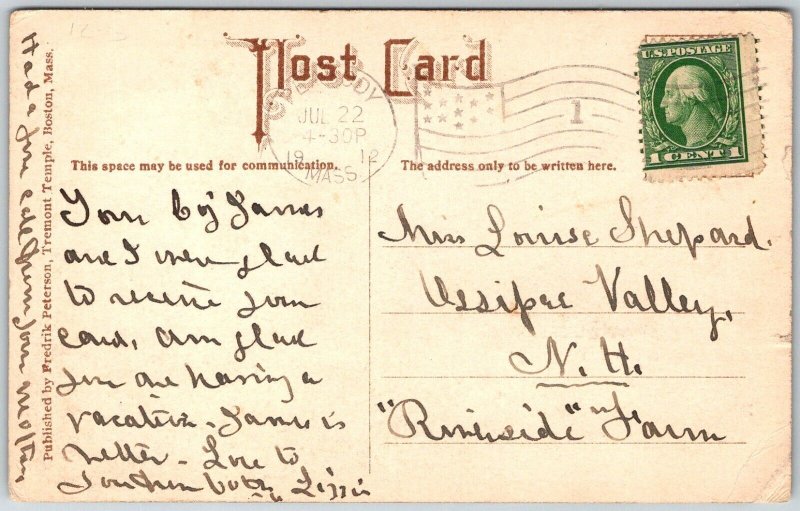 Post Card
PEABODY
JUL 22
4-30P
19 12
MASS.
1
U.S. POSTAGE
1 CENT 1
This space may be used for communication.
The address only to be written here.
Published by Fredrik Peterson, Tremont Temple, Boston, Mass.
Had a fine call from your
Your boy James
and I were glad
to receive your
card, am glad
you are having a
vacation - James is
better - Love to
both Lizzie
Miss Louise Shepard.
Ossipee Valley,
N. H.
"Riverside" Farm